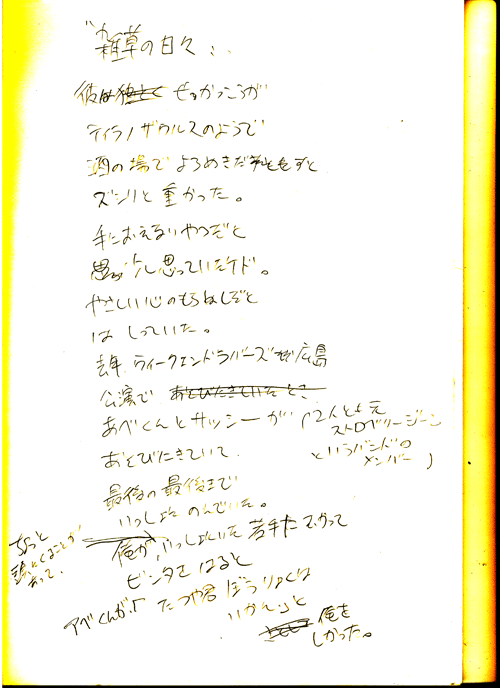 雑草の日々…
彼は ぜっかっこうが
ティラノザウルスのようで
酒の場で よろめきだ すと
ズシリと重かった。
手におえないやつだと
少し思っていたケド。
やさしい心のもちぬしだと
は しっていた。
去年、ウィークエンドラバーズ 広島
公演で
あべくんとサッシーが (2人とも元
ストロベリージーン
というバンドの
メンバー)
あそびにきていて、
最後の最後まで
いっしょに のんでいた。
ちょっと
頭にくることが
あって、
俺が、いっしょにいた 若手たたいて
ビンタをはると
アベくんが、「たつや君 ぼうりょくは
いかん」と
俺を
しかった。